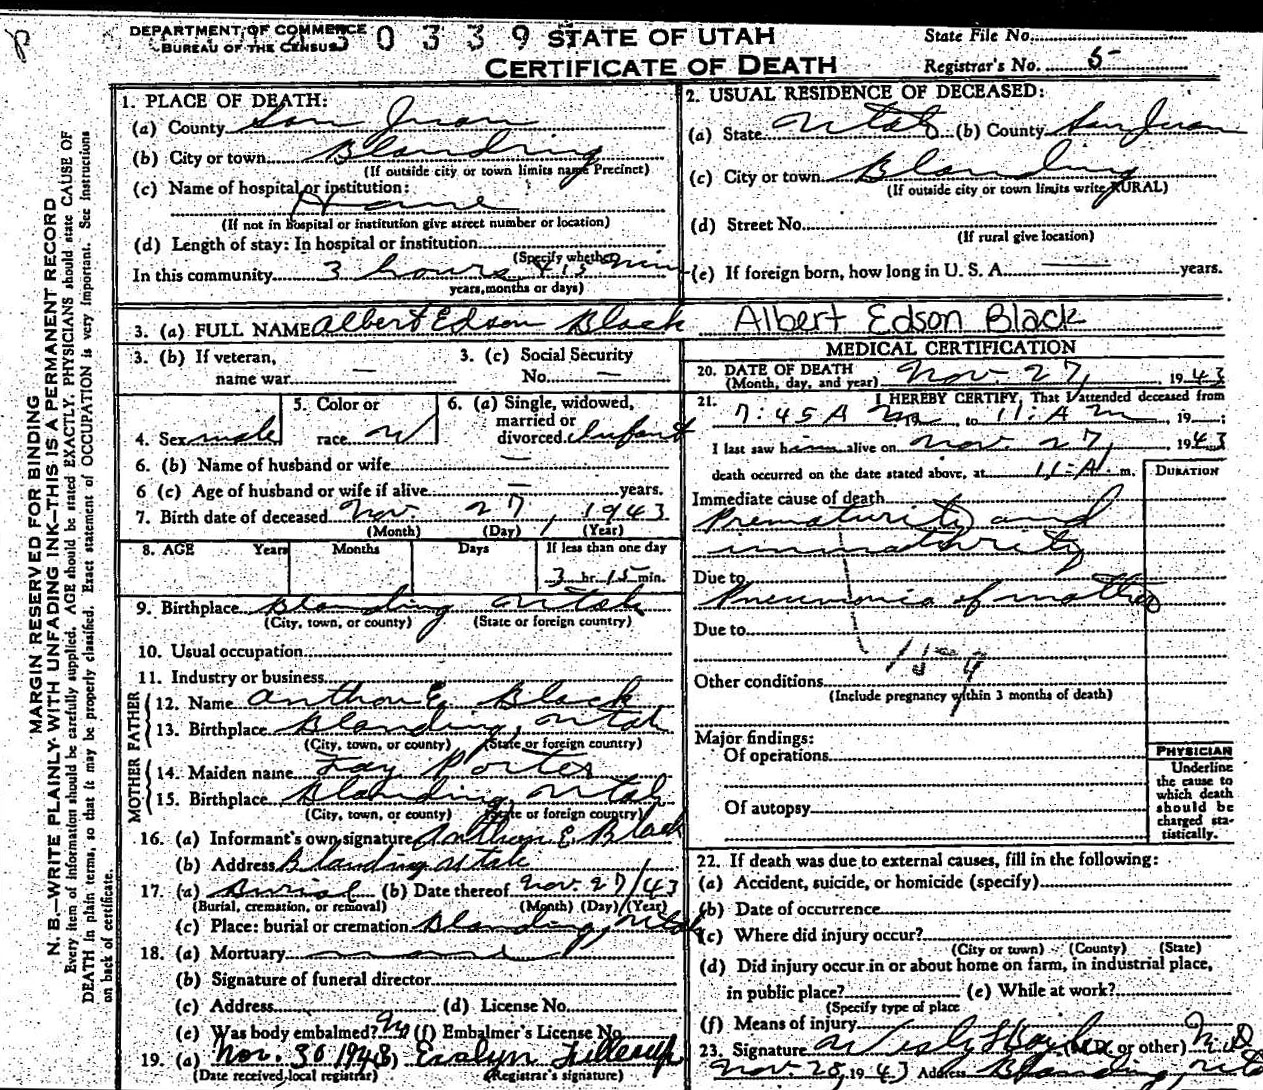 DEPARTMENT OF COMMERCE
BUREAU OF THE CENSUS
30339
STATE OF UTAH
CERTIFICATE OF DEATH
State File No.
Registrar's No. 5
MARGIN RESERVED FOR BINDING
N. B.—WRITE PLAINLY WITH UNFADING INK—THIS IS A PERMANENT RECORD
Every item of information should be carefully supplied. AGE should be stated EXACTLY. PHYSICIANS should state CAUSE OF
DEATH in plain terms, so that it may be properly classified. Exact statement of OCCUPATION is very important. See Instructions
on back of certificate.
1. PLACE OF DEATH:
(a) County San Juan
(b) City or town Blanding
(If outside city or town limits name Precinct)
(c) Name of hospital or institution:
Home
(If not in hospital or institution give street number or location)
(d) Length of stay: In hospital or institution
(Specify whether
In this community 3 hours & 15 min
years, months or days)
2. USUAL RESIDENCE OF DECEASED:
(a) State Utah (b) County San Juan
(c) City or town Blanding
(If outside city or town limits write RURAL)
(d) Street No.
(If rural give location)
(e) If foreign born, how long in U. S. A. — years.
3. (a) FULL NAME Albert Edson Black Albert Edson Black
3. (b) If veteran,
name war —
3. (c) Social Security
No. —
4. Sex male
5. Color or
race W
6. (a) Single, widowed,
married or
divorced Infant
6. (b) Name of husband or wife —
6 (c) Age of husband or wife if alive — years.
7. Birth date of deceased Nov 27, 1943
(Month) (Day) (Year)
8. AGE Years Months Days If less than one day
3 hr. 15 min.
9. Birthplace Blanding Utah
(City, town, or county) (State or foreign country)
10. Usual occupation
11. Industry or business
FATHER
12. Name Anthon E. Black
13. Birthplace Blanding, Utah
(City, town, or county) (State or foreign country)
MOTHER
14. Maiden name Fay Porter
15. Birthplace Blanding, Utah
(City, town, or county) (State or foreign country)
16. (a) Informant's own signature Anthon E. Black
(b) Address Blanding Utah
17. (a) Burial (b) Date thereof Nov. 27/43
(Burial, cremation, or removal) (Month) (Day) (Year)
(c) Place: burial or cremation Blanding, Utah
18. (a) Mortuary
(b) Signature of funeral director
(c) Address (d) License No.
(e) Was body embalmed? No (f) Embalmer's License No.
19. (a) Nov. 30 1943) Evelyn
(Date received local registrar) (Registrar's signature)
MEDICAL CERTIFICATION
20. DATE OF DEATH
(Month, day, and year) Nov. 27, 1943
21. I HEREBY CERTIFY, That I attended deceased from
7:45 A m, to 11: A m, 19 ;
I last saw him alive on Nov 27, 1943
death occurred on the date stated above, at 11: A. m.
DURATION
Immediate cause of death
Prematurity and
immaturity
Due to
Pneumonia of mother
Due to
159
Other conditions
(Include pregnancy within 3 months of death)
Major findings:
Of operations
Of autopsy
PHYSICIAN
Underline
the cause to
which death
should be
charged sta-
tistically.
22. If death was due to external causes, fill in the following:
(a) Accident, suicide, or homicide (specify)
(b) Date of occurrence
(c) Where did injury occur?
(City or town) (County) (State)
(d) Did injury occur in or about home on farm, in industrial place,
in public place? (e) While at work?
(Specify type of place
(f) Means of injury
23. Signature (M.D. or other) M D
Nov 28, 1943 Address Blanding, Utah